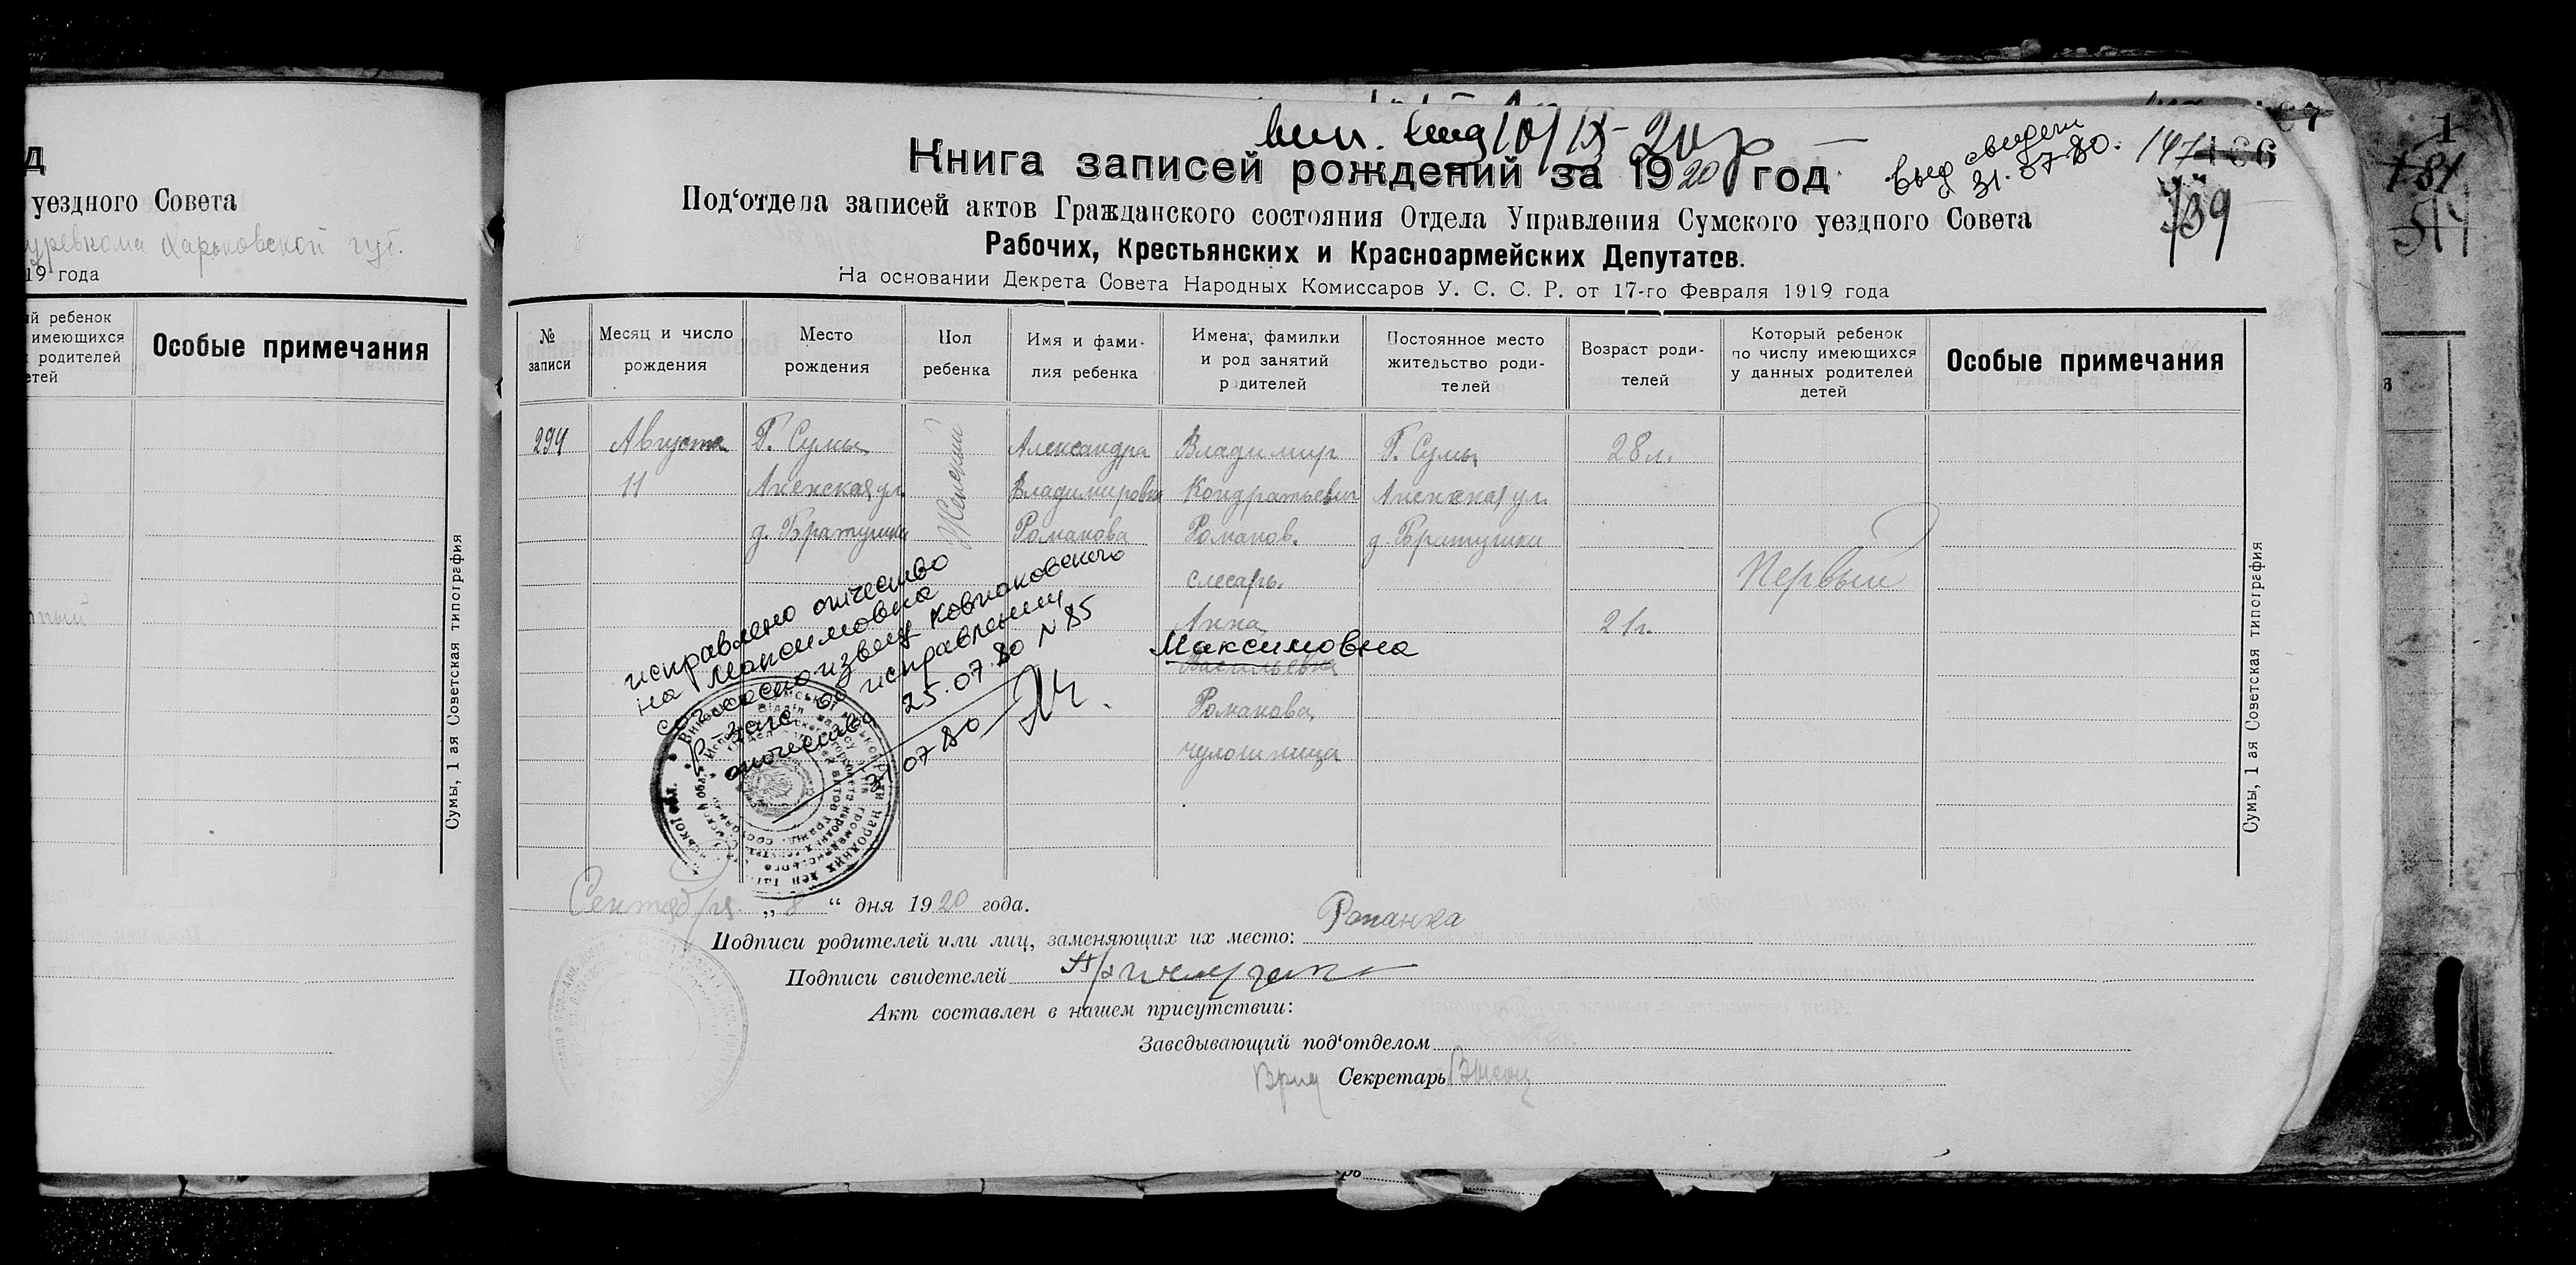 д
уездного Совета
Харьковской губ.
19 года
ребенок
имеющихся
родителей
Особые примечания
Сумы, 1 ая Советская типография
10/IX-20
Книга записей рождений за 1920 год
Под‘отдела записей актов Гражданского состояния Отдела Управления Сумского уездного Совета
Рабочих, Крестьянских и Красноармейских Депутатов.
На основании Декрета Совета Народных Комиссаров У. С. С. Р. от 17-го Февраля 1919 года
выд свидет
31.07.80.
147
186
139
67
1
181
№ записи
Месяц и число рождения
Место рождения
Пол ребенка
Имя и фами-лия ребенка
Имена, фамилки и род занятий родителей
Постоянное место жительство роди-телей
Возраст роди-телей
Который ребенок по числу имеющихся у данных родителей детей
Особые примечания
294 Августа Г. Сумы Женский Александра Владимир Г. Сумы 28 л.
11 Владимировна Кондратьевич
д. Братушки Романова Романов. д. Братушки
слесарь. Первый
Анна 21 г.
Максимовна
Васильевна
Романова
чулошница
исправлено отчество
на Максимовна
согласно извещ Ковпаковского
р-заго об исправлении
отчества 25.07.80 №85
31 07 80
Сумы, 1 ая Советская типография
Сентября „8“ дня 1920 года.
Подписи родителей или лиц, заменяющих их место:
Подписи свидетелей
Акт составлен в нашем присутствии:
Заведывающий под‘отделом
Врид Секретарь